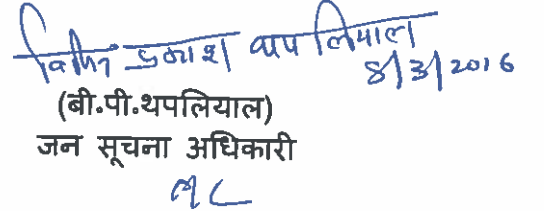 विपिन प्रकाश थपलियाल
8/3/2016
(बी.पी.थपलियाल)
जन सूचना अधिकारी